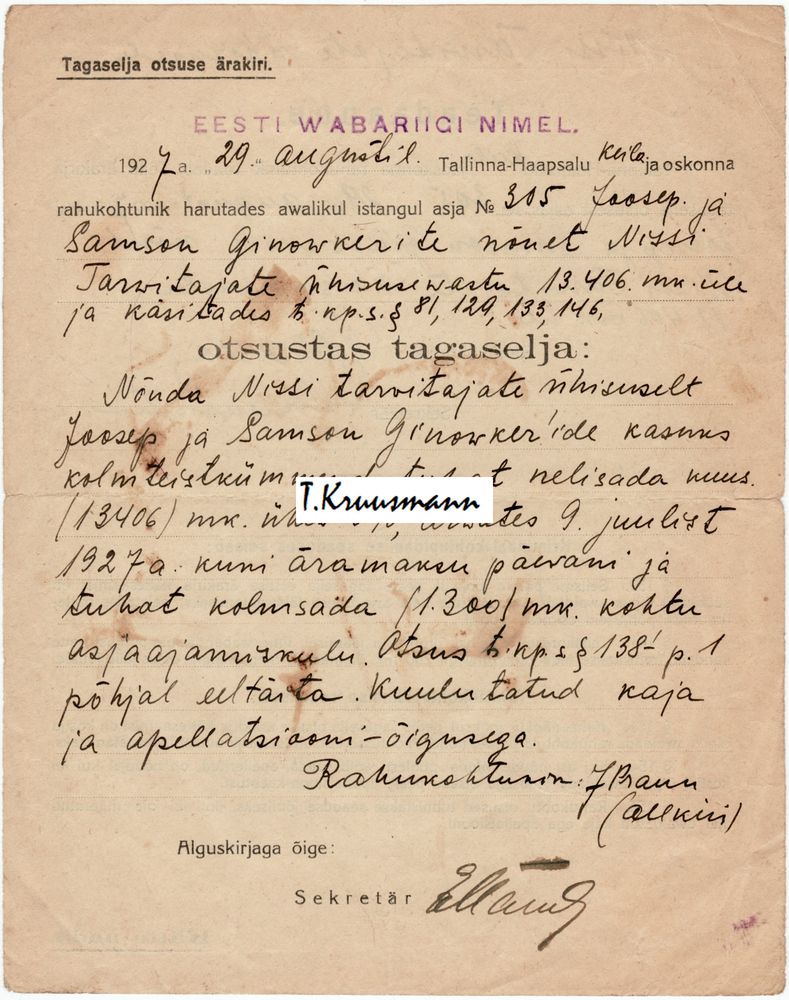 Tagaselja otsuse ärakiri.
EESTI WABARIIGI NIMEL.
1927 a. „29." augustil. Tallinna-Haapsalu Keila jaoskonna
rahukohtunik harutades awalikul istangul asja № 305 Joosep. ja
Samson Ginowkerite nõuet Nissi
Tarwitajate ühisuse wastu 13.406. mk. üle
ja käsitades ts.kp.s. § 81, 129, 133, 146,
otsustas tagaselja:
Nõuda Nissi tarvitajate ühisuselt
Joosep ja Samson Ginowker'ide kasuks
kolmteistkümmend tuhat nelisada kuus.
T.Kruusmann
(13406) mk. ühes arwates 9. juulist
1927 a. kuni äramaksu päewani ja
tuhat kolmsada (1.300) mk. kohtu
asjaajamiskulu. Otsus ts.kp.s § 138 p. 1
põhjal eeltäita. Kuulutatud kaja
ja apellatsiooni-õigusega.
Rahukohtunik: J Braun
(allkiri)
Alguskirjaga õige:
Sekretär